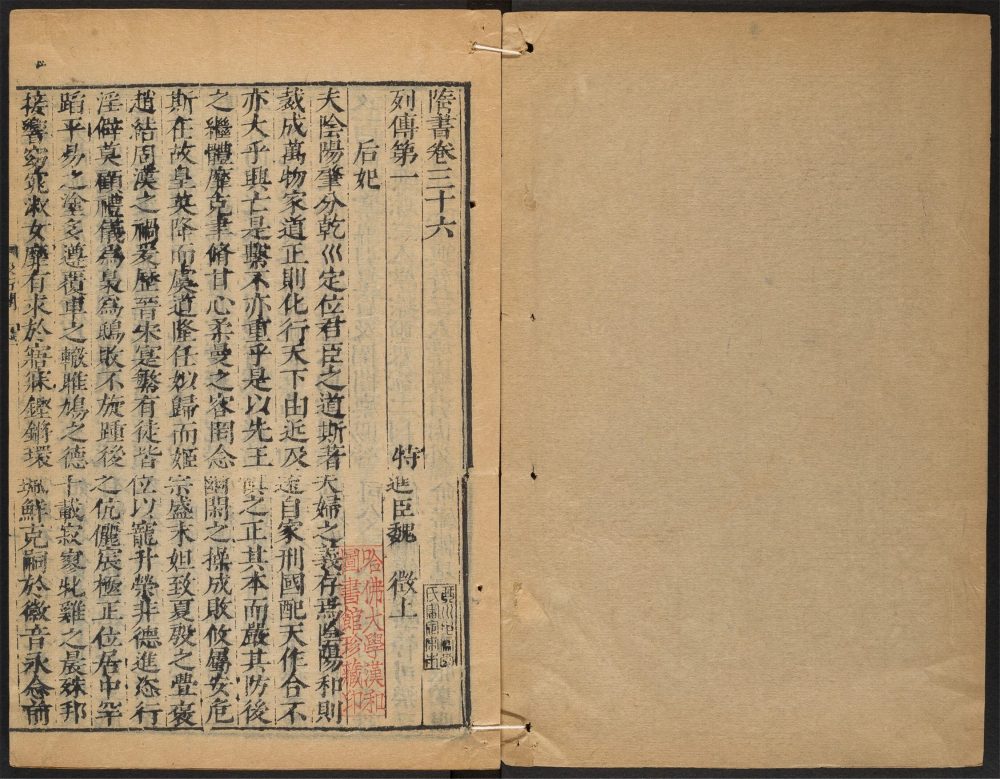 隋書卷三十六
列傳第一
特進臣魏
徵上
后妃
夫陰陽肇分乾巛定位君臣之道斯著夫婦之義存焉陰陽和則
裁成萬物家道正則化行天下由近及遠自家刑國配天作合不
亦大乎興亡是繫不亦重乎是以先王慎之正其本而嚴其防後
之繼體靡克聿脩甘心柔曼之容罔念幽閑之操成敗攸屬安危
斯在故皇英降而虞道隆任姒歸而姬宗盛末妲致夏殷之釁褒
趙結周漢之禍爰歷晉宋寔繁有徒皆位以寵升榮非德進恣行
淫僻莫顧禮儀為梟為鴟敗不旋踵後之伉儷宸極正位居中罕
蹈平易之塗多遵覆車之轍雎鳩之德千載寂寥牝雞之晨殊邦
接響窈窕淑女靡有求於寤寐鏗鏘環珮鮮克嗣於徽音永念前
哈佛大學漢和
圖書館珍藏印